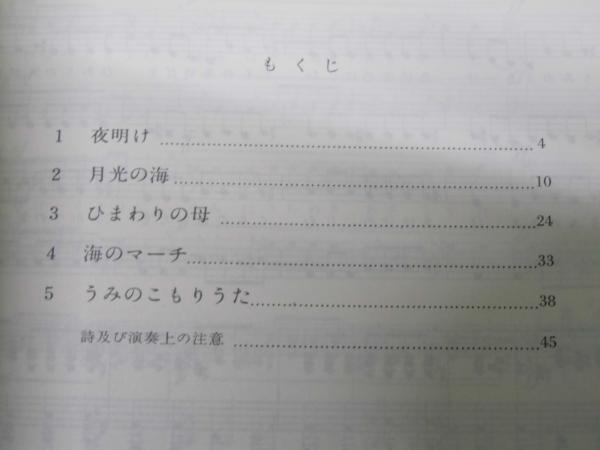 もくじ
1 夜明け 4
2 月光の海 10
3 ひまわりの母 24
4 海のマーチ 33
5 うみのこもりうた 38
詩及び演奏上の注意 45